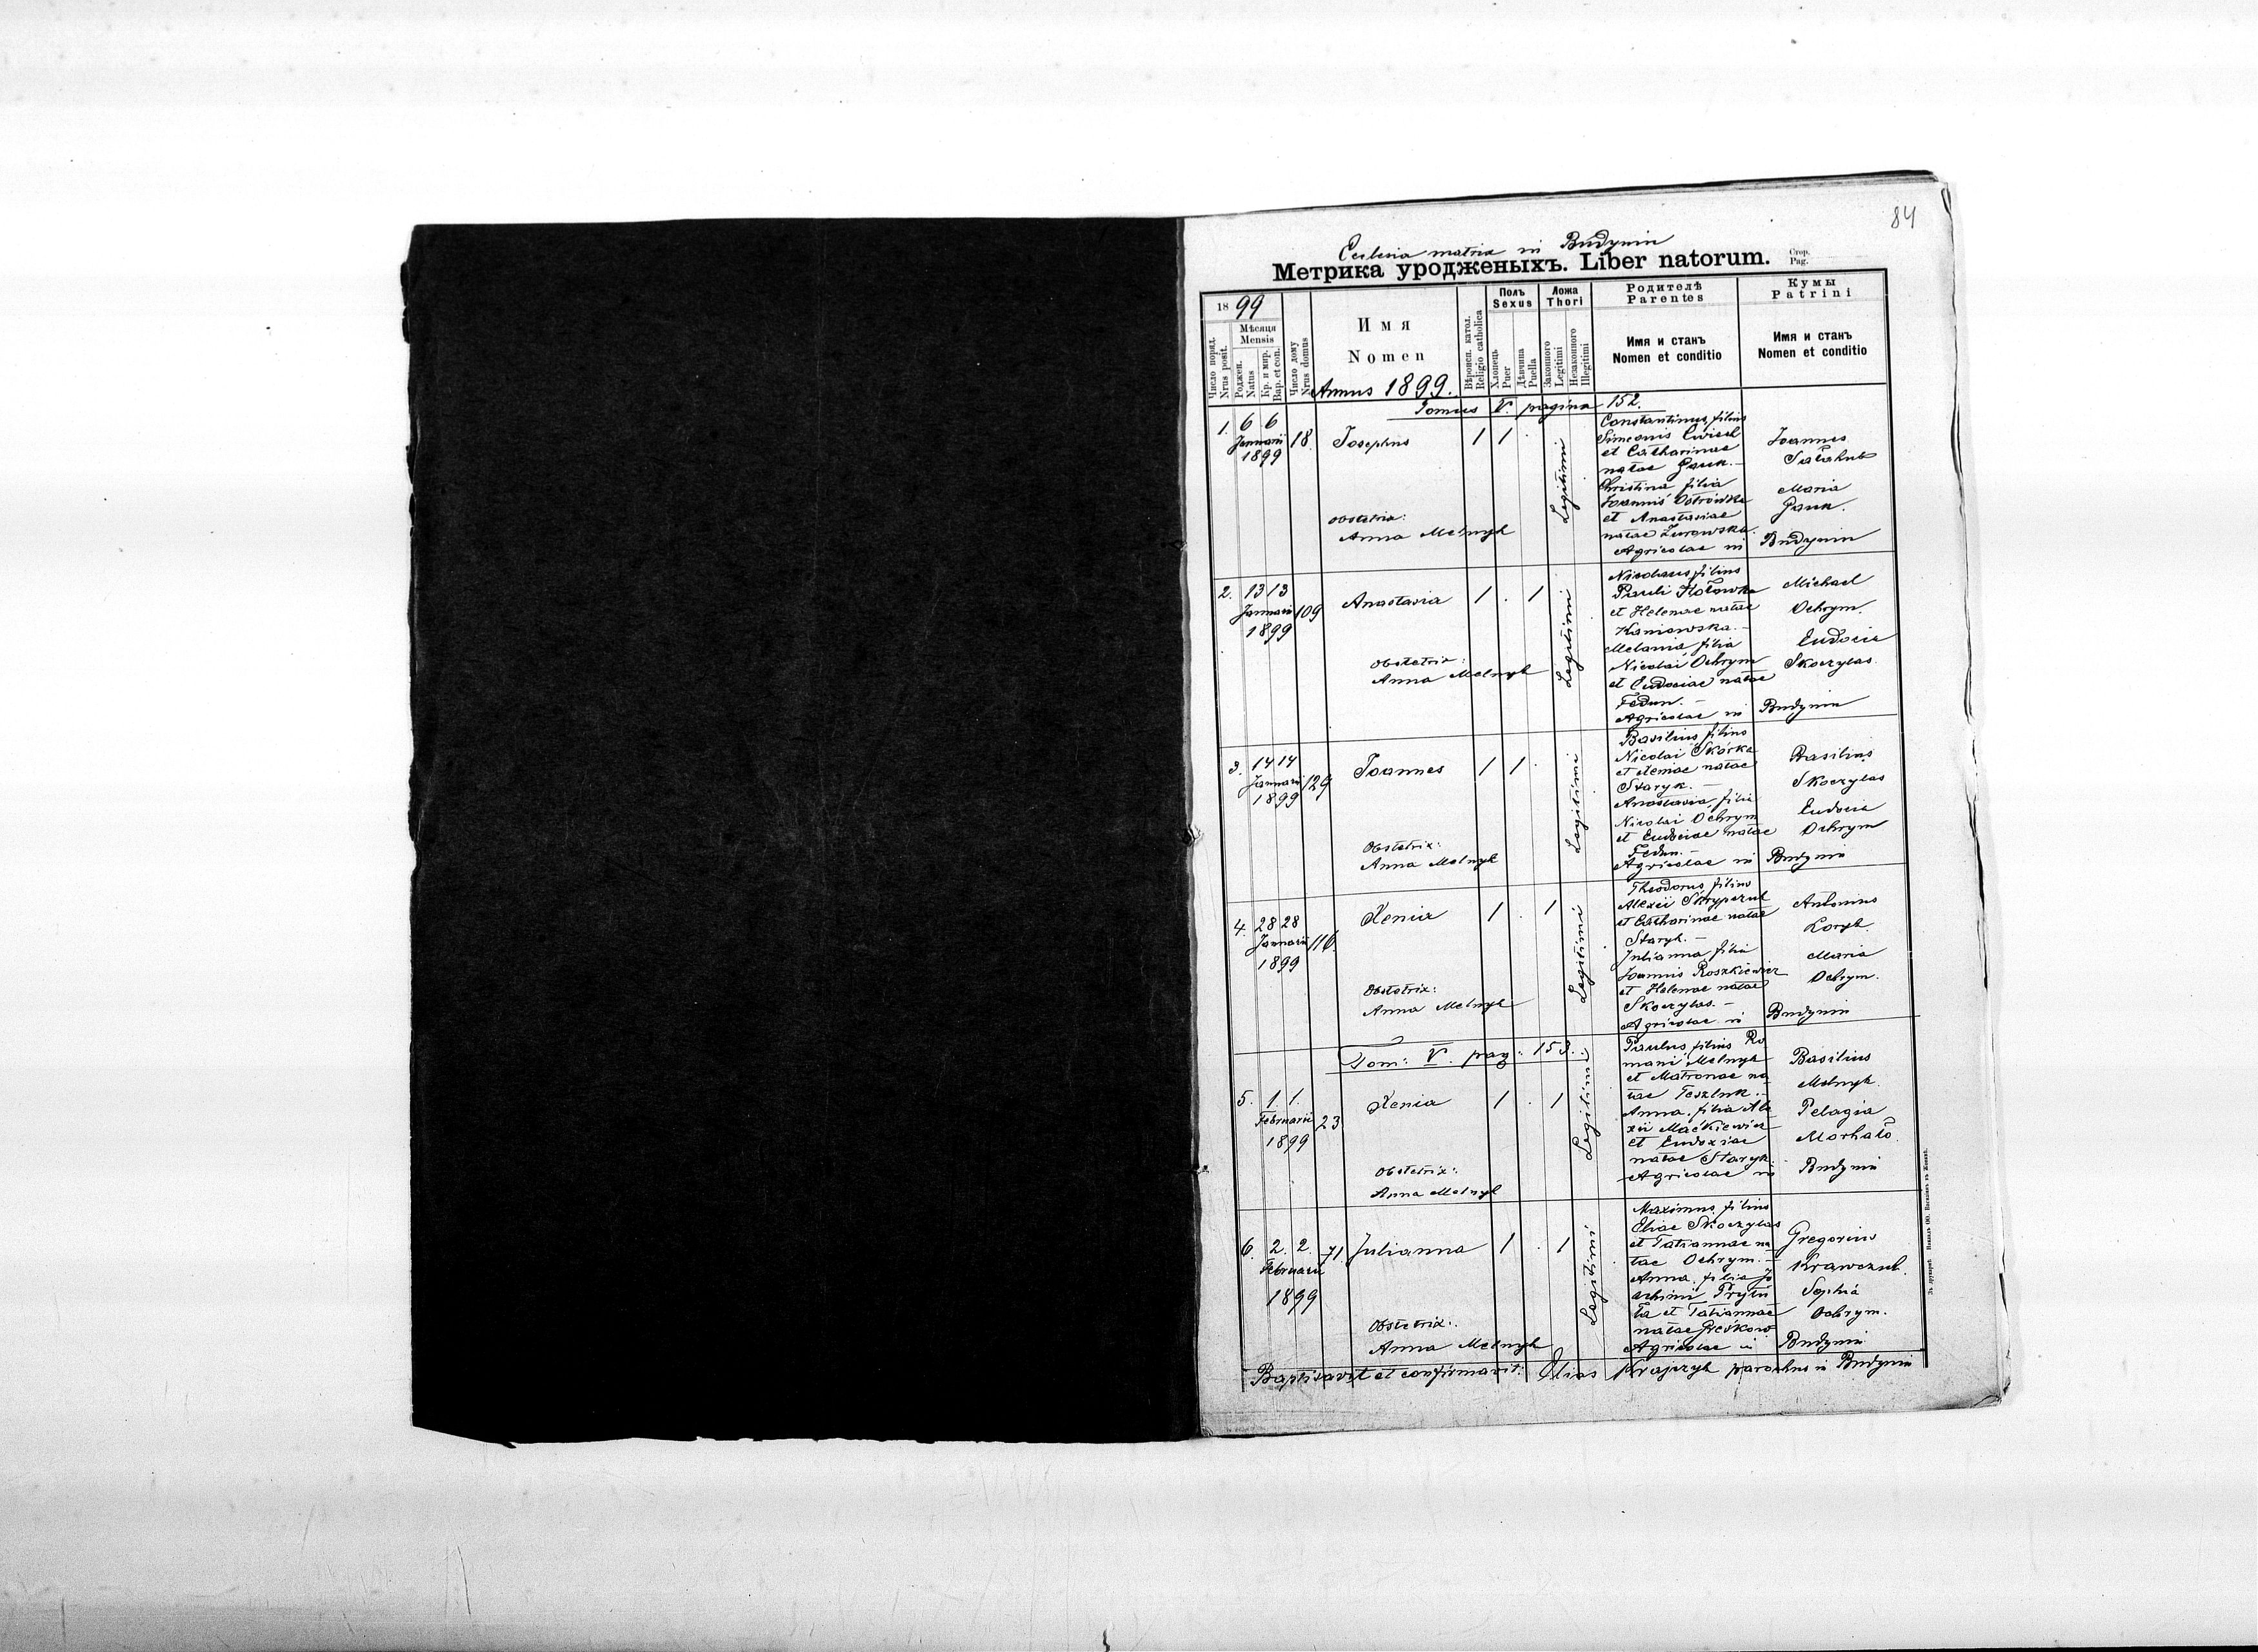 84
Ecclesia matrix in Budynin
Метрика уродженыхъ. Liber natorum.
Стор.
Pag.
18 99
Число поряд.
Nrus posit.
Мѣсяця
Mensis
Роджен.
Natus
Кр. и мир.
Bap. et con.
Число дому
Nrus domus
Имя
Nomen
Вѣроисп. катол.
Religio catholica
Полъ
Sexus
Хлопець
Puer
Дѣвчина
Puella
Ложа
Thori
Законного
Legitimi
Незаконного
Illegitimi
Родителѣ
Parentes
Имя и станъ
Nomen et conditio
Кумы
Patrini
Имя и станъ
Nomen et conditio
Annus 1899.
Tomus V. pagina 152.
1. 6 6
Januarii
1899
18
Josephus
1 1 .
Legitimi
obstetrix:
Anna Melnyk
Constantinus, filius
Simeonis
et Catharinae
natae Gauk. –
Christina filia
Joannis Ostrówka
et Anastasiae
natae Żurowska.
Agricolae in
Joannes
Maria
Gauk.
Budynin
2. 13 13
Januarii
1899
109
Anastasia
1 . 1
Legitimi
Obstetrix:
Anna Melnyk
Nicolaus filius
Pauli Hołowka
et Helenae natae
Kaniowska. –
Melania filia
Nicolai Ochrym
et Eudociae natae
Fedun. –
Agricolae in
Michael
Ochrym.
Eudocia
Skoczylas.
Budynin
3. 14 14
Januarii
1899
129
Joannes
1 1 .
Legitimi
Obstetrix:
Anna Melnyk
Basilius filius
Nicolai Skórka
et Xeniae natae
Staryk. –
Anastasia, filia
Nicolai Ochrym
et Eudociae natae
Fedun. –
Agricolae in
Basilius
Skoczylas
Eudocia
Ochrym
Budynin
4. 28 28
Januarii
1899
116.
Xenia
1 . 1
Legitimi
Obstetrix:
Anna Melnyk
Theodorus, filius
Alexii Skrypczuk
et Catharinae natae
Staryk. –
Julianna filia
Joannis Roszkiewicz
et Helenae natae
Skoczylas. –
Agricolae in
Antonius
Koryk.
Maria
Ochrym.
Budynin
Tom: V. pag: 153.
5. 1. 1.
Februarii
1899
23
Xenia
1 . 1
Legitimi
Obstetrix:
Anna Melnyk
Paulus filius Ro
mani Melnyk
et Matronae na
tae Teszluk. –
Anna, filia Ale
xii Maćkiewicz
et Eudoxiae
natae Staryk.
Agricolae in
Basilius
Melnyk.
Pelagia
Morhało.
Budynin
6. 2. 2.
Februarii
1899
71.
Julianna
1 . 1
Legitimi
Obstetrix:
Anna Melnyk
Maximus, filius
Eliae Skoczylas
et Tatiannae na
tae Ochrym. –
Anna, filia Jo
achimi Prytu
ła et Tatiannae
natae
Agricolae in
Gregorius
Krawczuk.
Sophia
Ochrym.
Budynin
Baptisavit et confirmavit: Elias Krajczyk parochus in Budynin